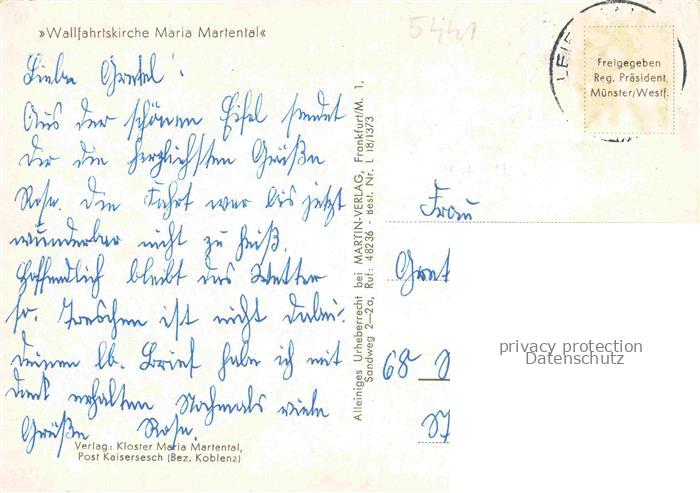 »Wallfahrtskirche Maria Martental«
5441
Liebe Gretel!
Aus der schönen Eifel sendet
Dir die herzlichsten Grüße
Rose. Die Fahrt war bis jetzt
wunderbar nicht zu heiß.
Hoffentlich bleibt das Wetter
so. ist nicht dabei.
Deinen lb. Brief habe ich mit
Dank erhalten Nochmals viele
Grüße Rose.
Verlag: Kloster Maria Martental,
Post Kaisersesch (Bez. Koblenz)
Alleiniges Urheberrecht bei MARTIN-VERLAG, Frankfurt/M. 1,
Sandweg 2-2a, Ruf: 48236 - Best. Nr. L 18/1373
Freigegeben
Reg. Präsident
Münster/Westf.
Frau
Gret
68
privacy protection
Datenschutz